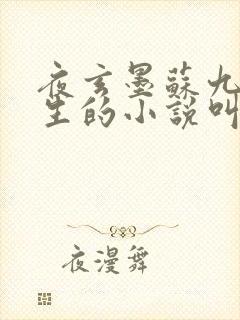 夜玄墨蘇九
生的小說叫
夜漫舞